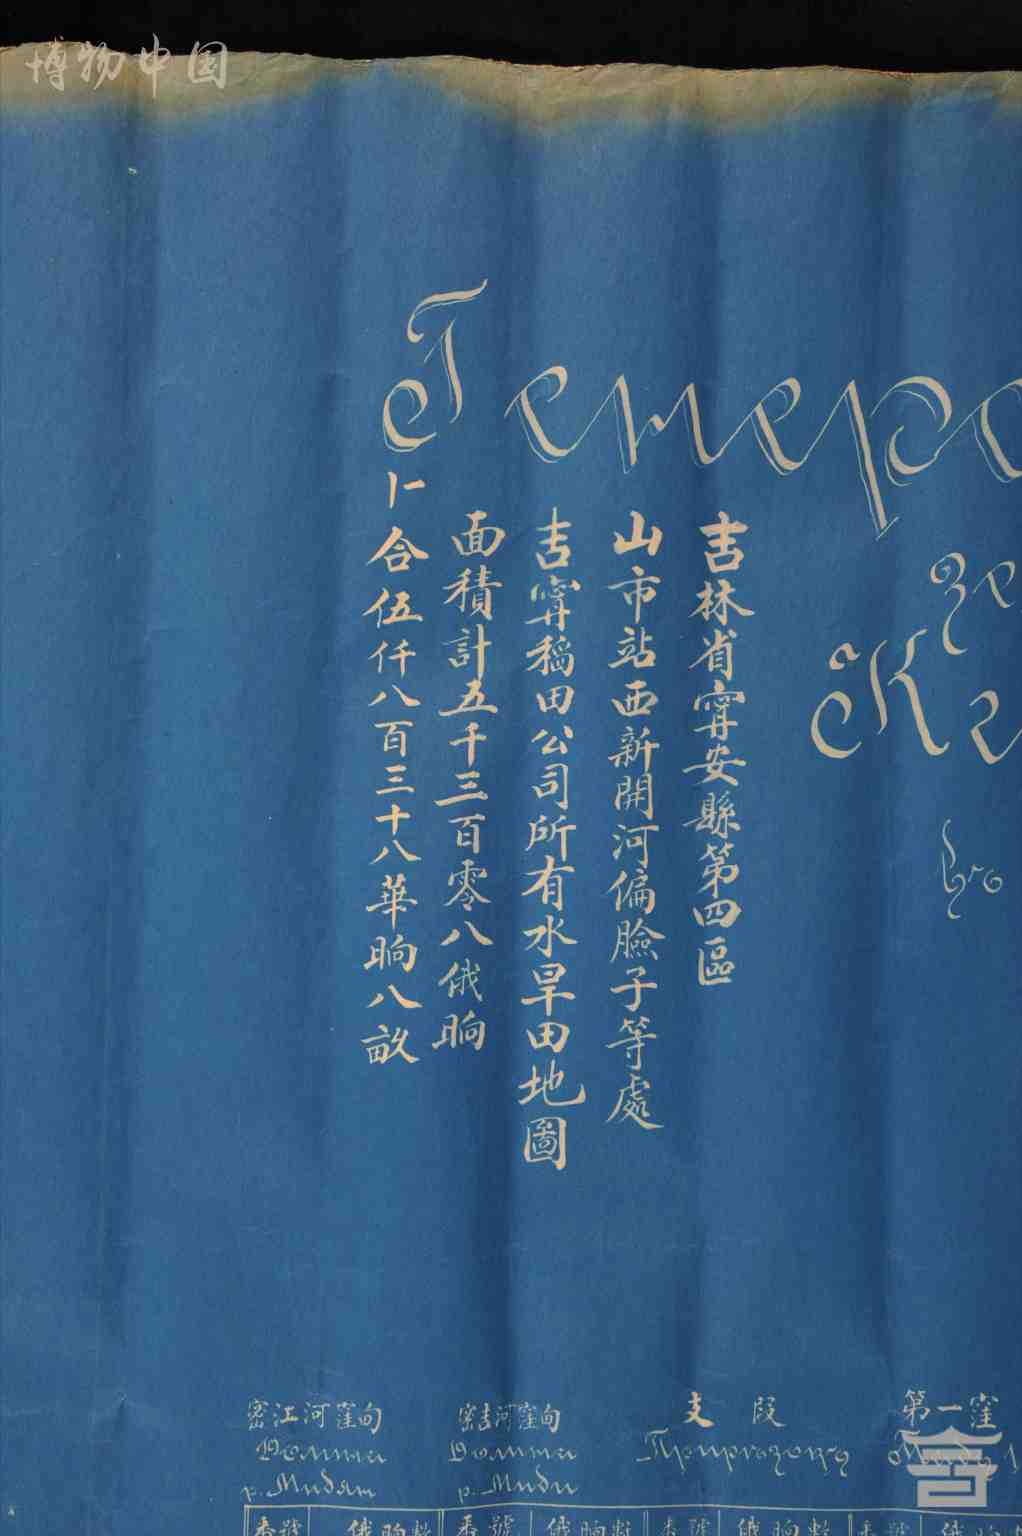 博物中国
Генера
吉林省寧安縣第四區
山市站西新開河偏臉子等處
吉寧稻田公司所有水旱田地圖
面積計五千三百零八俄晌
卜一合伍仟八百三十八華晌八畝
密江河窪甸
Долина
р. Мидян
密吉河窪甸
Долина
р. Миди
支段
第一窪
番號
俄晌數
番號
俄晌數
番號
俄晌數
番號